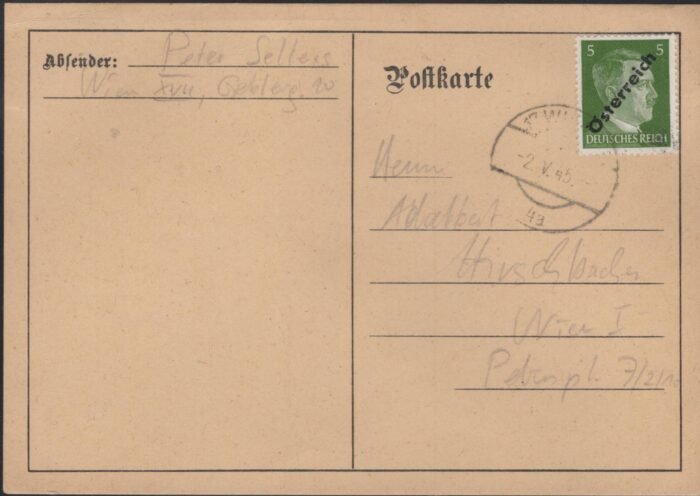 Absender: Peter Sellers
Wien XVII, 10
Postkarte
5 5
Österreich
DEUTSCHES REICH
WI
-2. V. 45.
4a
Herrn
Adalbert
Hirschbacher
Wien I
7/2/10